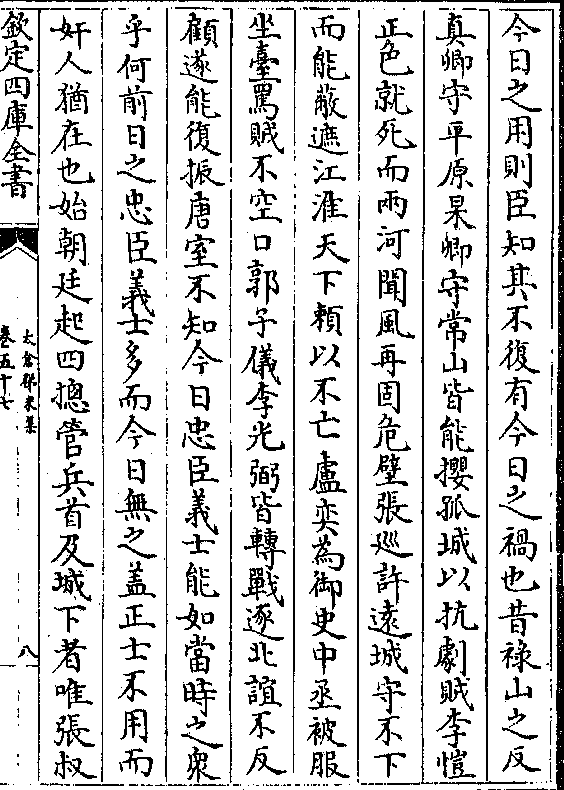 今日之用則臣知其不復有今日之禍也昔祿山之反
真卿守平原杲卿守常山皆能攖孤城以抗劇賊李愷
正色就死而兩河聞風再固危壁張巡許遠城守不下
而能蔽遮江淮天下賴以不亡盧奕為御史中丞被服
坐臺罵賊不空口郭子儀李光弼皆轉戰逐北誼不反
顧遂能復振唐室不知今日忠臣義士能如當時之衆
乎何前日之忠臣義士多而今日無之盖正士不用而
奸人猶在也始朝廷起四摠管兵首及城下者唯張叔
欽定四庫全書
太倉稊米集
卷五十七
八